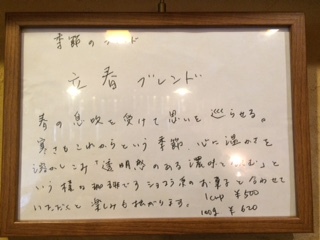 季節のブレンド
立春ブレンド
春の息吹を受けて思いを巡らせる。
寒さもこれからという季節、心に温かさを
溶かしこみ「透明感のある濃味を楽しむ」と
いう様な珈琲ですショコラ系のお菓子と合わせて
いただくと楽しみも拡がります。
1cup ¥500
100g ¥620